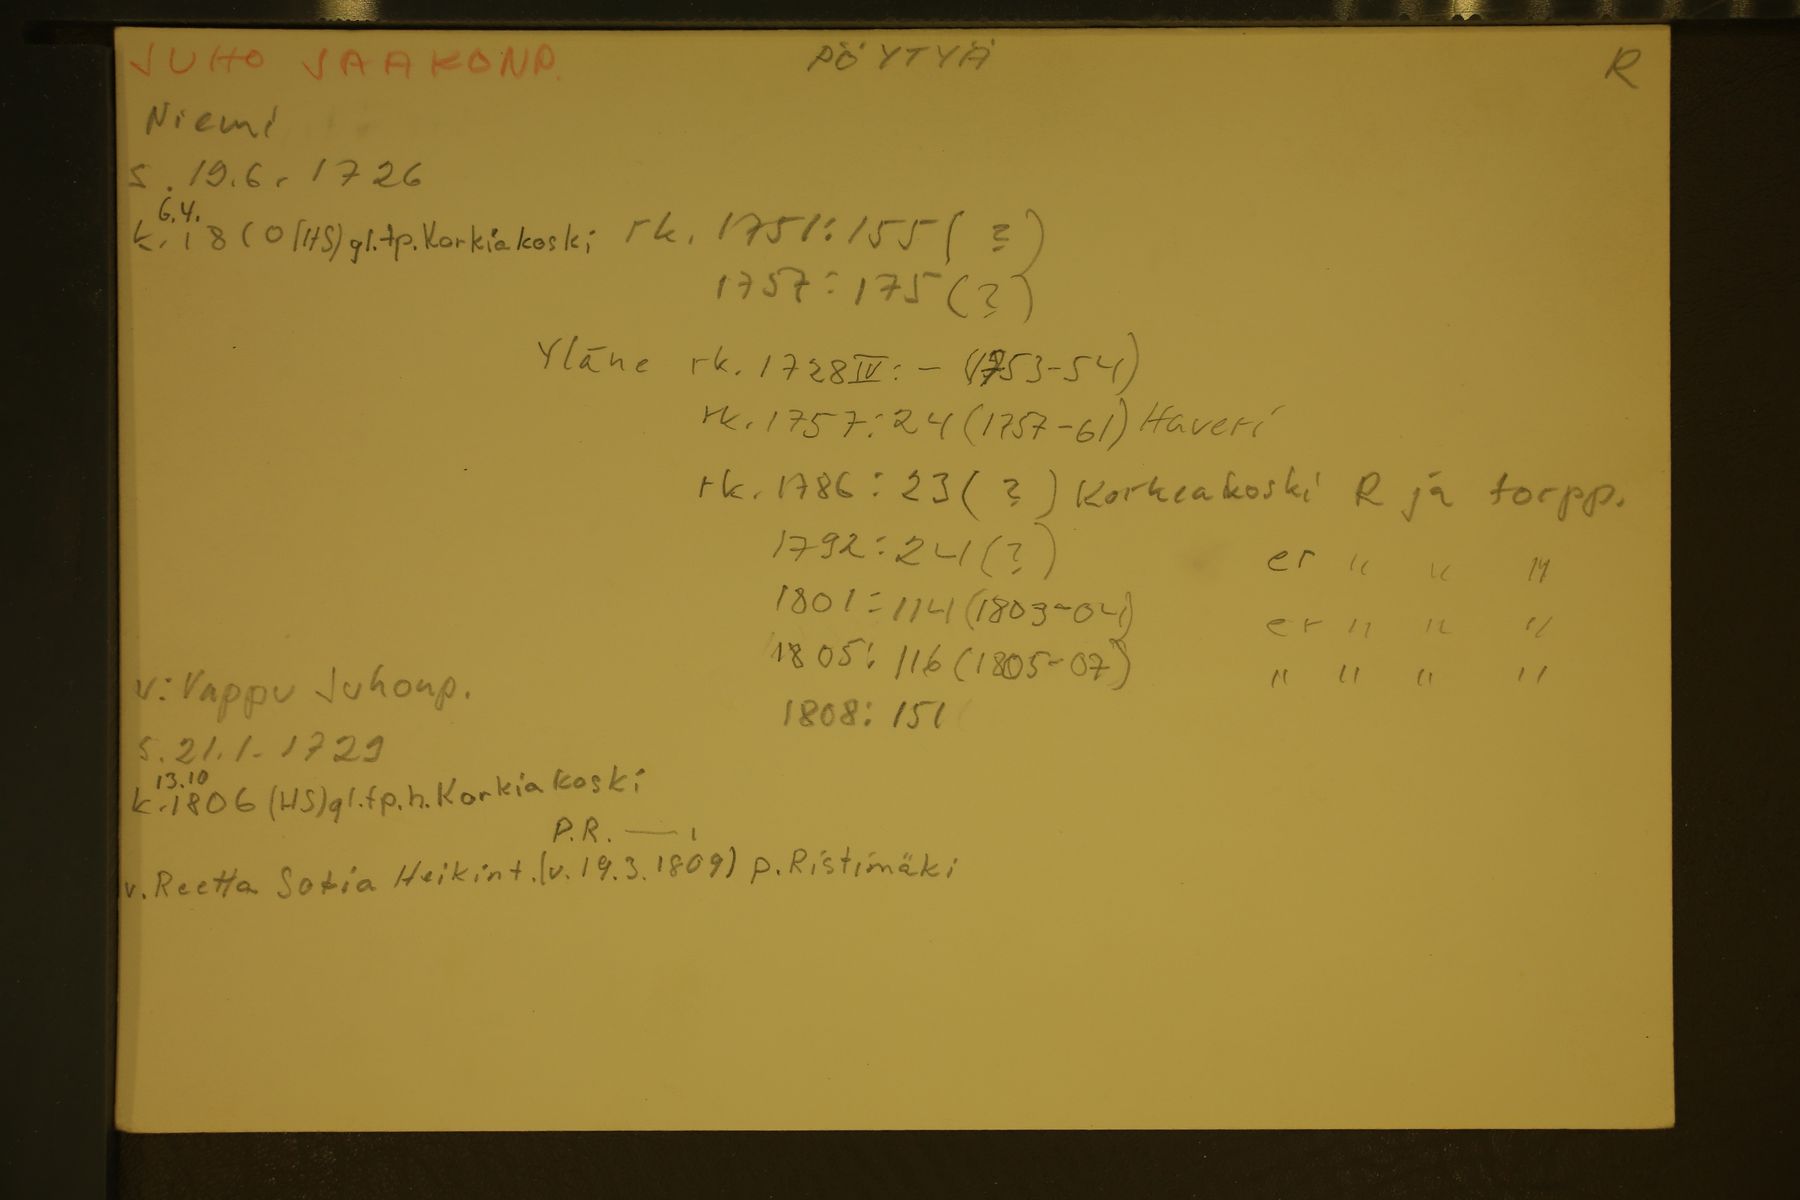 JUHO JAAKONP. PÖYTYÄ R
Niemi
s. 19.6. 1726
6.4.
k. 1810 (HS) gl.tp. Korkiakoski rk. 1751: 155 ( ? )
1757: 175 (?)
Yläne rk. 1728 IV: - (1753-54)
rk. 1757: 24 (1757-61) Haveri
rk. 1786: 23 ( ? ) Korkeakoski R ja torpp.
1792: 24 (?) er " " "
1801: 114 (1803-04) er " " "
1805: 116 (1805-07) " " " "
1808: 151
v: Vappu Juhonp.
s. 21.1. 1729
13.10
k. 1806 (HS) gl.tp.h. Korkiakoski
P.R. —— ,
v. Reetta Sofia Heikint. (v. 19.3.1809) p. Ristimäki